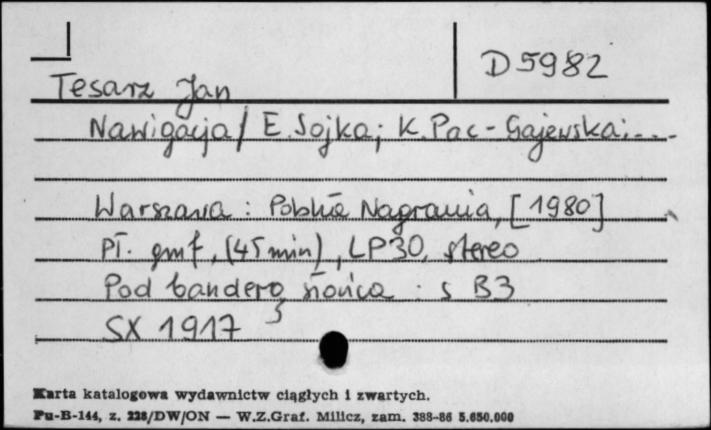 D 5982
Tesarz Jan
Nawigacja / E. Sojka; K. Pac-Gajewska; ...
Warszawa : Polskie Nagrania, [1980]
Pł. gmf, (45 min), LP30, stereo
Pod banderą słońca : s B3
SX 1917
Karta katalogowa wydawnictw ciągłych i zwartych.
Pu-B-144, z. 228/DW/ON — W.Z.Graf. Milicz, zam. 388-86 5.650.000